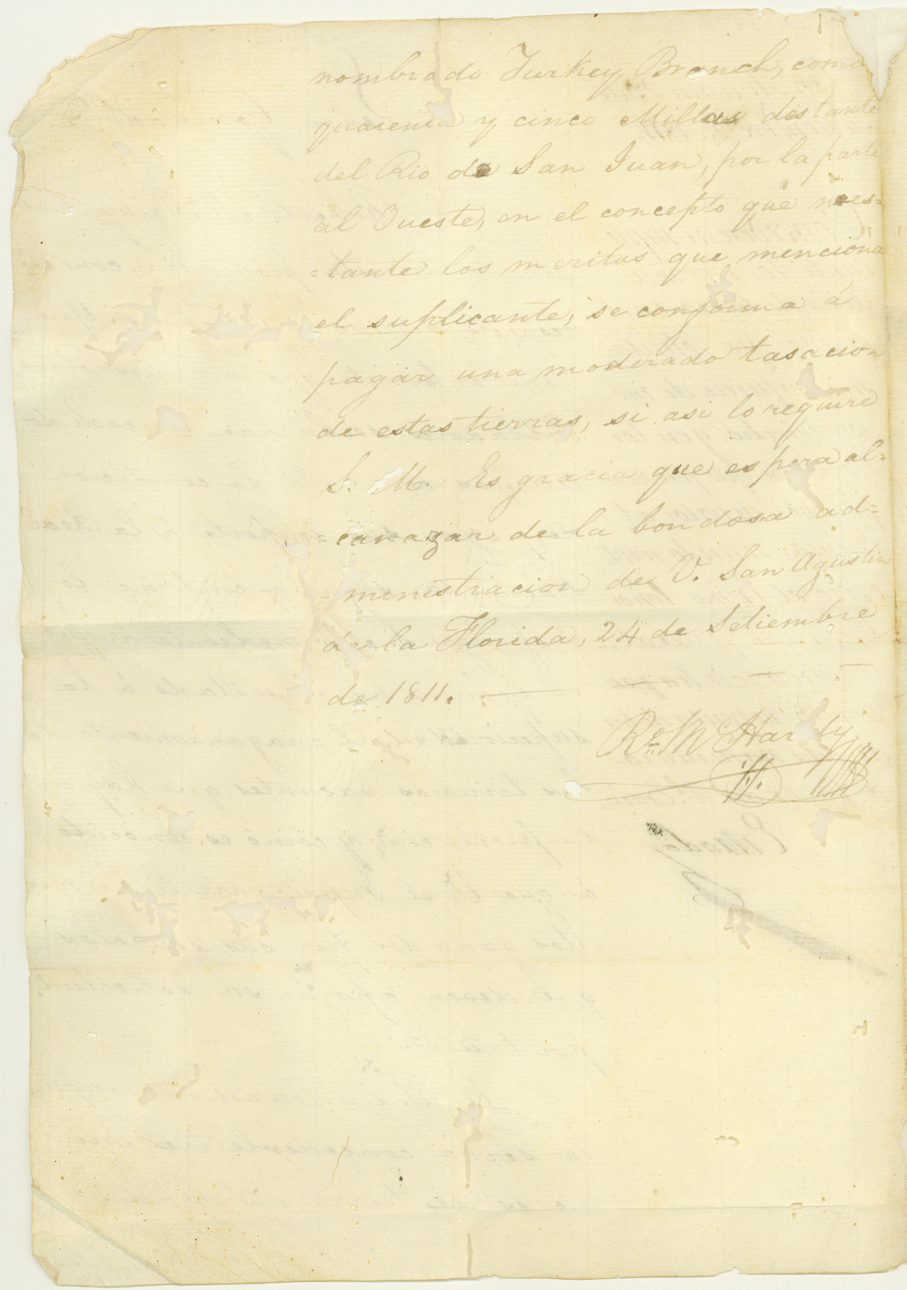 nombrado Turkey Branch, como
quarenta y cinco Millas distante
del Rio de San Juan, por la parte
al Oueste, en el concepto que
=tante los meritos que menciona
el suplicante, se conforma á
pagar una moderado tasacion
de estas tierras, si asi lo require
S. M. Es gracia que espera al=
canazar de la bondosa ad=
menistracion de V. San Agustin
la Florida, 24 de Setiembre
de 1811.
Rt. McHardy